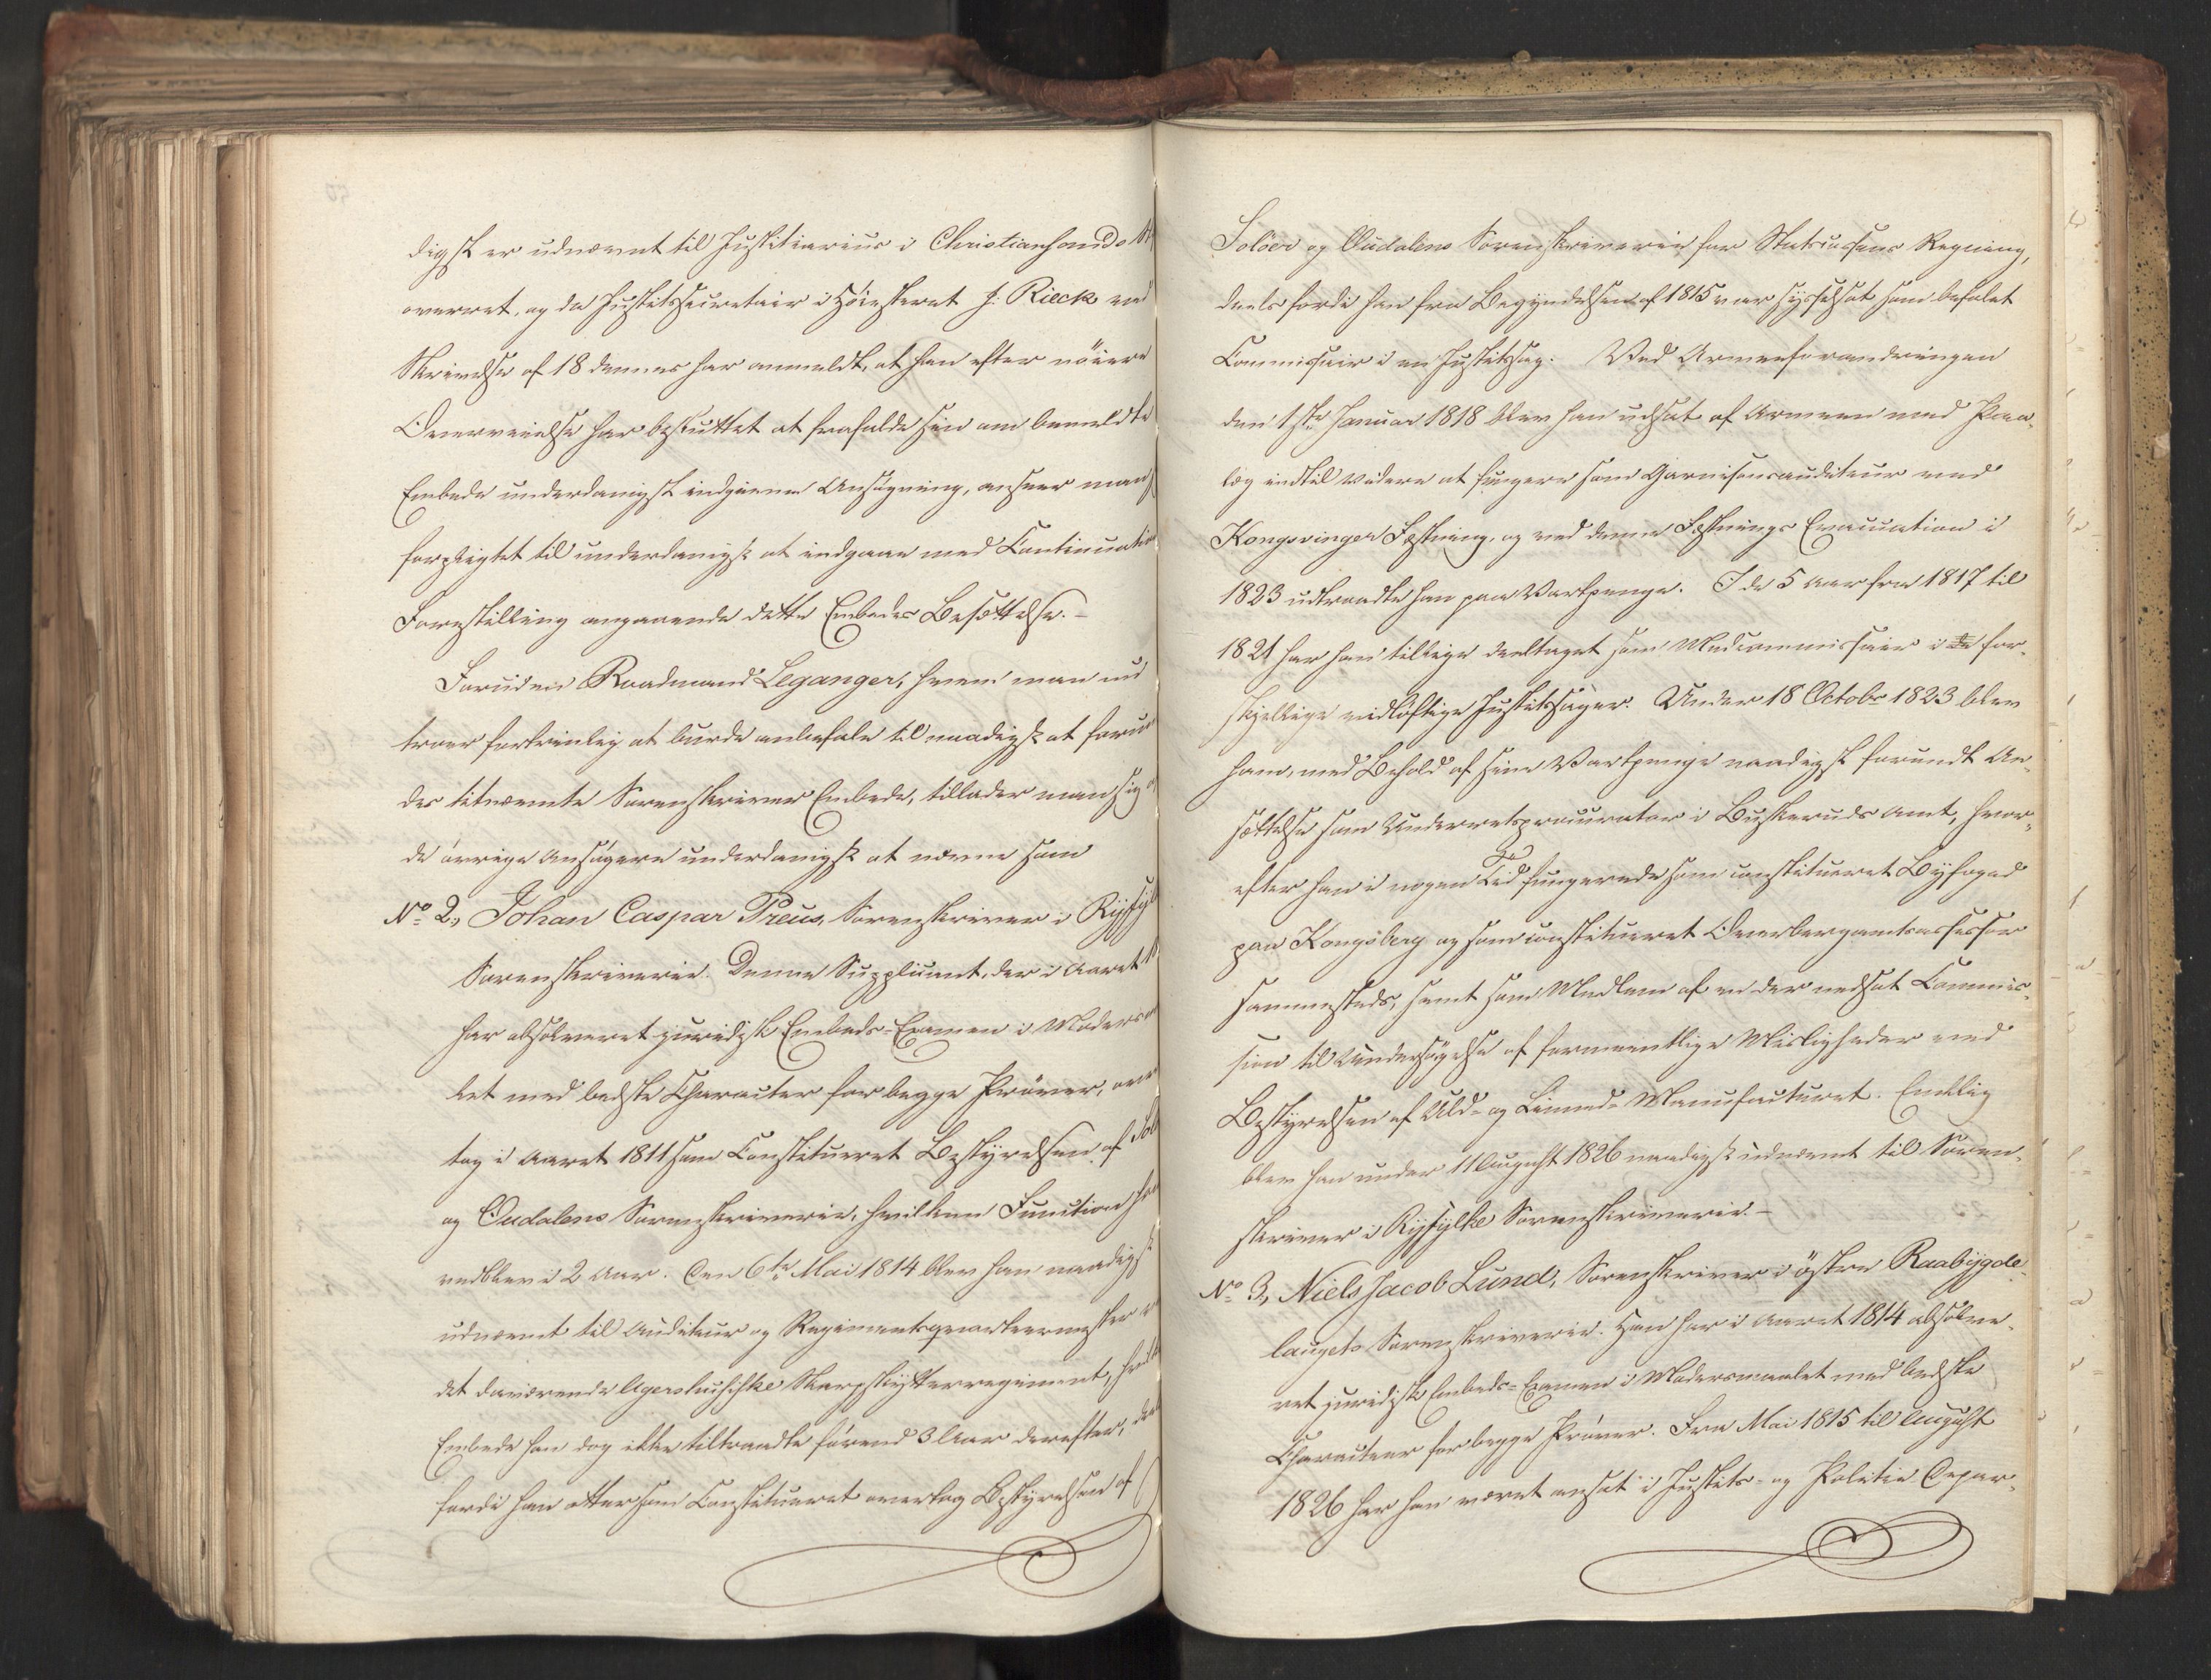 digst er udnævnt til Justitiarius i Christiansands Sti
overret, og da Justitssecretair i Höiesteret J: Rieck ved
Skrivelse af 18 dennes har anmeldt, at han efter nöiere
Overveielse har besluttet at frafalde sin om bemeldte
Embede underdanigst indgivne Ansögning, anseer man s
forpligtet til underdanigst at indgaae med Continuation
Forestilling angaaende dette Embedes Besættelse. –
Foruden Raadmand Leganger, hvem man ud
troer fortrinlig at burde anbefale til naadigst at forun
des bemeldte Sorenskriver Embede, tillader man sig
de övrige Ansögere underdanigst at nævne som
No 2, Johan Caspar Preus, Sorenskriver i Ryfyl
Sorenskriverie. Denne Supplicant, der i Aaret
har absolveret juridisk Embeds-Examen i Modersm
let med bedste Character for begge Pröver, over
tog i Aaret 1811 som Constitueret Bestyrelsen af Sol
og Oudalens Sorenskriverie, hvilken Function han
vedblev i 2 Aar. Den 6te Mai 1814 blev han naadigst
udnævnt til Auditeur og Regimentsqvarteermester v
det daværende Agershusiske Skarpskytterregiment, hvilk
Embede han dog ikke tiltraadte förend 3 Aar derefter, deel
fordi han atter som Constitueret overtog Bestyrelsen af
Solöer og Oudalens Sorenskriverie for Statscassens Regning,
deels fordi han fra Begyndelsen af 1815 var sysselsat som befalet
Commissair i en Justitssag. Ved Armeeforandringen
den 1ste Januar 1818 blev han udsat af Armeen med Paa-
læg indtil videre at fungere som Garnisonsauditeur ved
Kongsvinger Fæstning, og ved denne Fæstnings Evacuation i
1823 udtraadte han paa Vartpenge. I de 5 Aar fra 1817 til
1821 har han tillige deeltaget som Medcommissair i de for-
skjellige vidlöftige Justitssager. Under 18 Octobr 1823 blev
ham, med Behold af sine Vartpenge naadigst forundt An-
sættelse som Underretsprocurator i Buskeruds Amt, hvor-
efter han i nogen Tid fungerede som constitueret Byfoged
paa Kongsberg og som constitueret Overbergamtsassessor
sammesteds, samt som Medlem af en der nedsat Commis-
sion til Undersögelse af formeentlige Misligheder ved
Bestyrelsen af Uld- og Linned-Manufacturet. Endelig
blev han under 11 August 1826 naadigst udnævnt til Soren-
skriver i Ryfylke Sorenskriverie. –
No 3, Niels Jacob Lund, Sorenskriver i östre Raabygde-
laugets Sorenskriverie. Han har i Aaret 1814 absolve-
ret juridisk Embeds-Examen i Modersmaalet med bedste
Characteer for begge Pröver. Fra Mai 1815 til August
1826 har han været ansat i Justits- og Politie Depar-